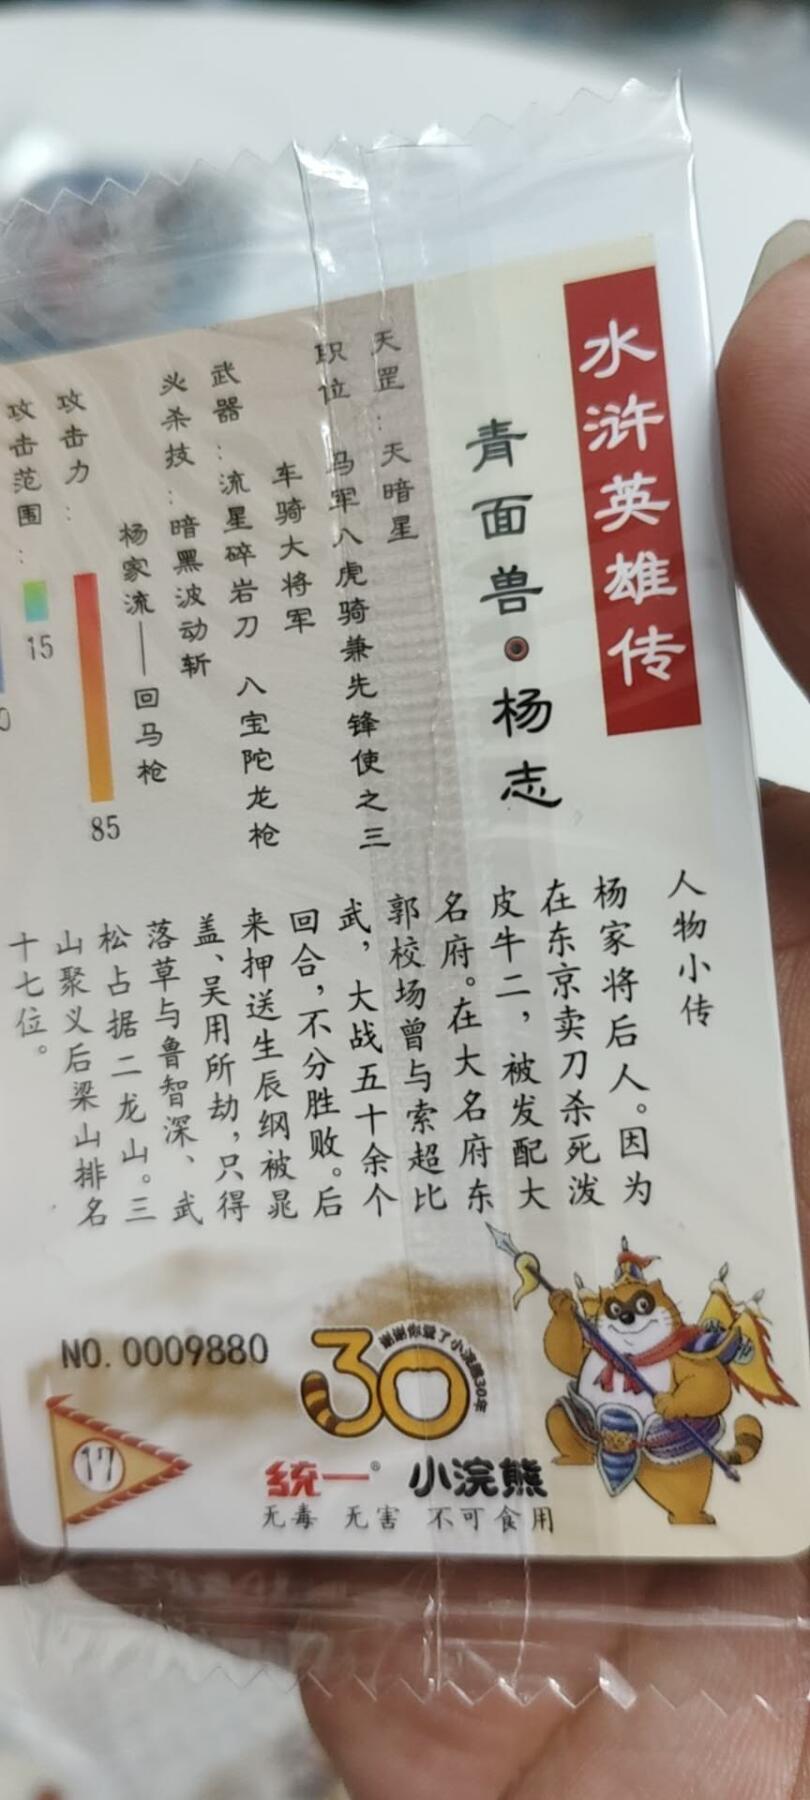 水浒英雄传
青面兽·杨志
天罡：天暗星
职位 马军八虎骑兼先锋使之三
车骑大将军
武器：流星碎岩刀 八宝陀龙枪
必杀技：暗黑波动斩
杨家流——回马枪
攻击力：
85
攻击范围：
15
0
人物小传
杨家将后人。因为
在东京卖刀杀死泼
皮牛二，被发配大
名府。在大名府东
郭校场曾与索超比
武，大战五十余个
回合，不分胜败。后
来押送生辰纲被晁
盖、吴用所劫，只得
落草与鲁智深、武
松占据二龙山。三
山聚义后梁山排名
十七位。
NO.0009880
30
谢谢你爱了小浣熊30年
17
统一® 小浣熊
无毒 无害 不可食用